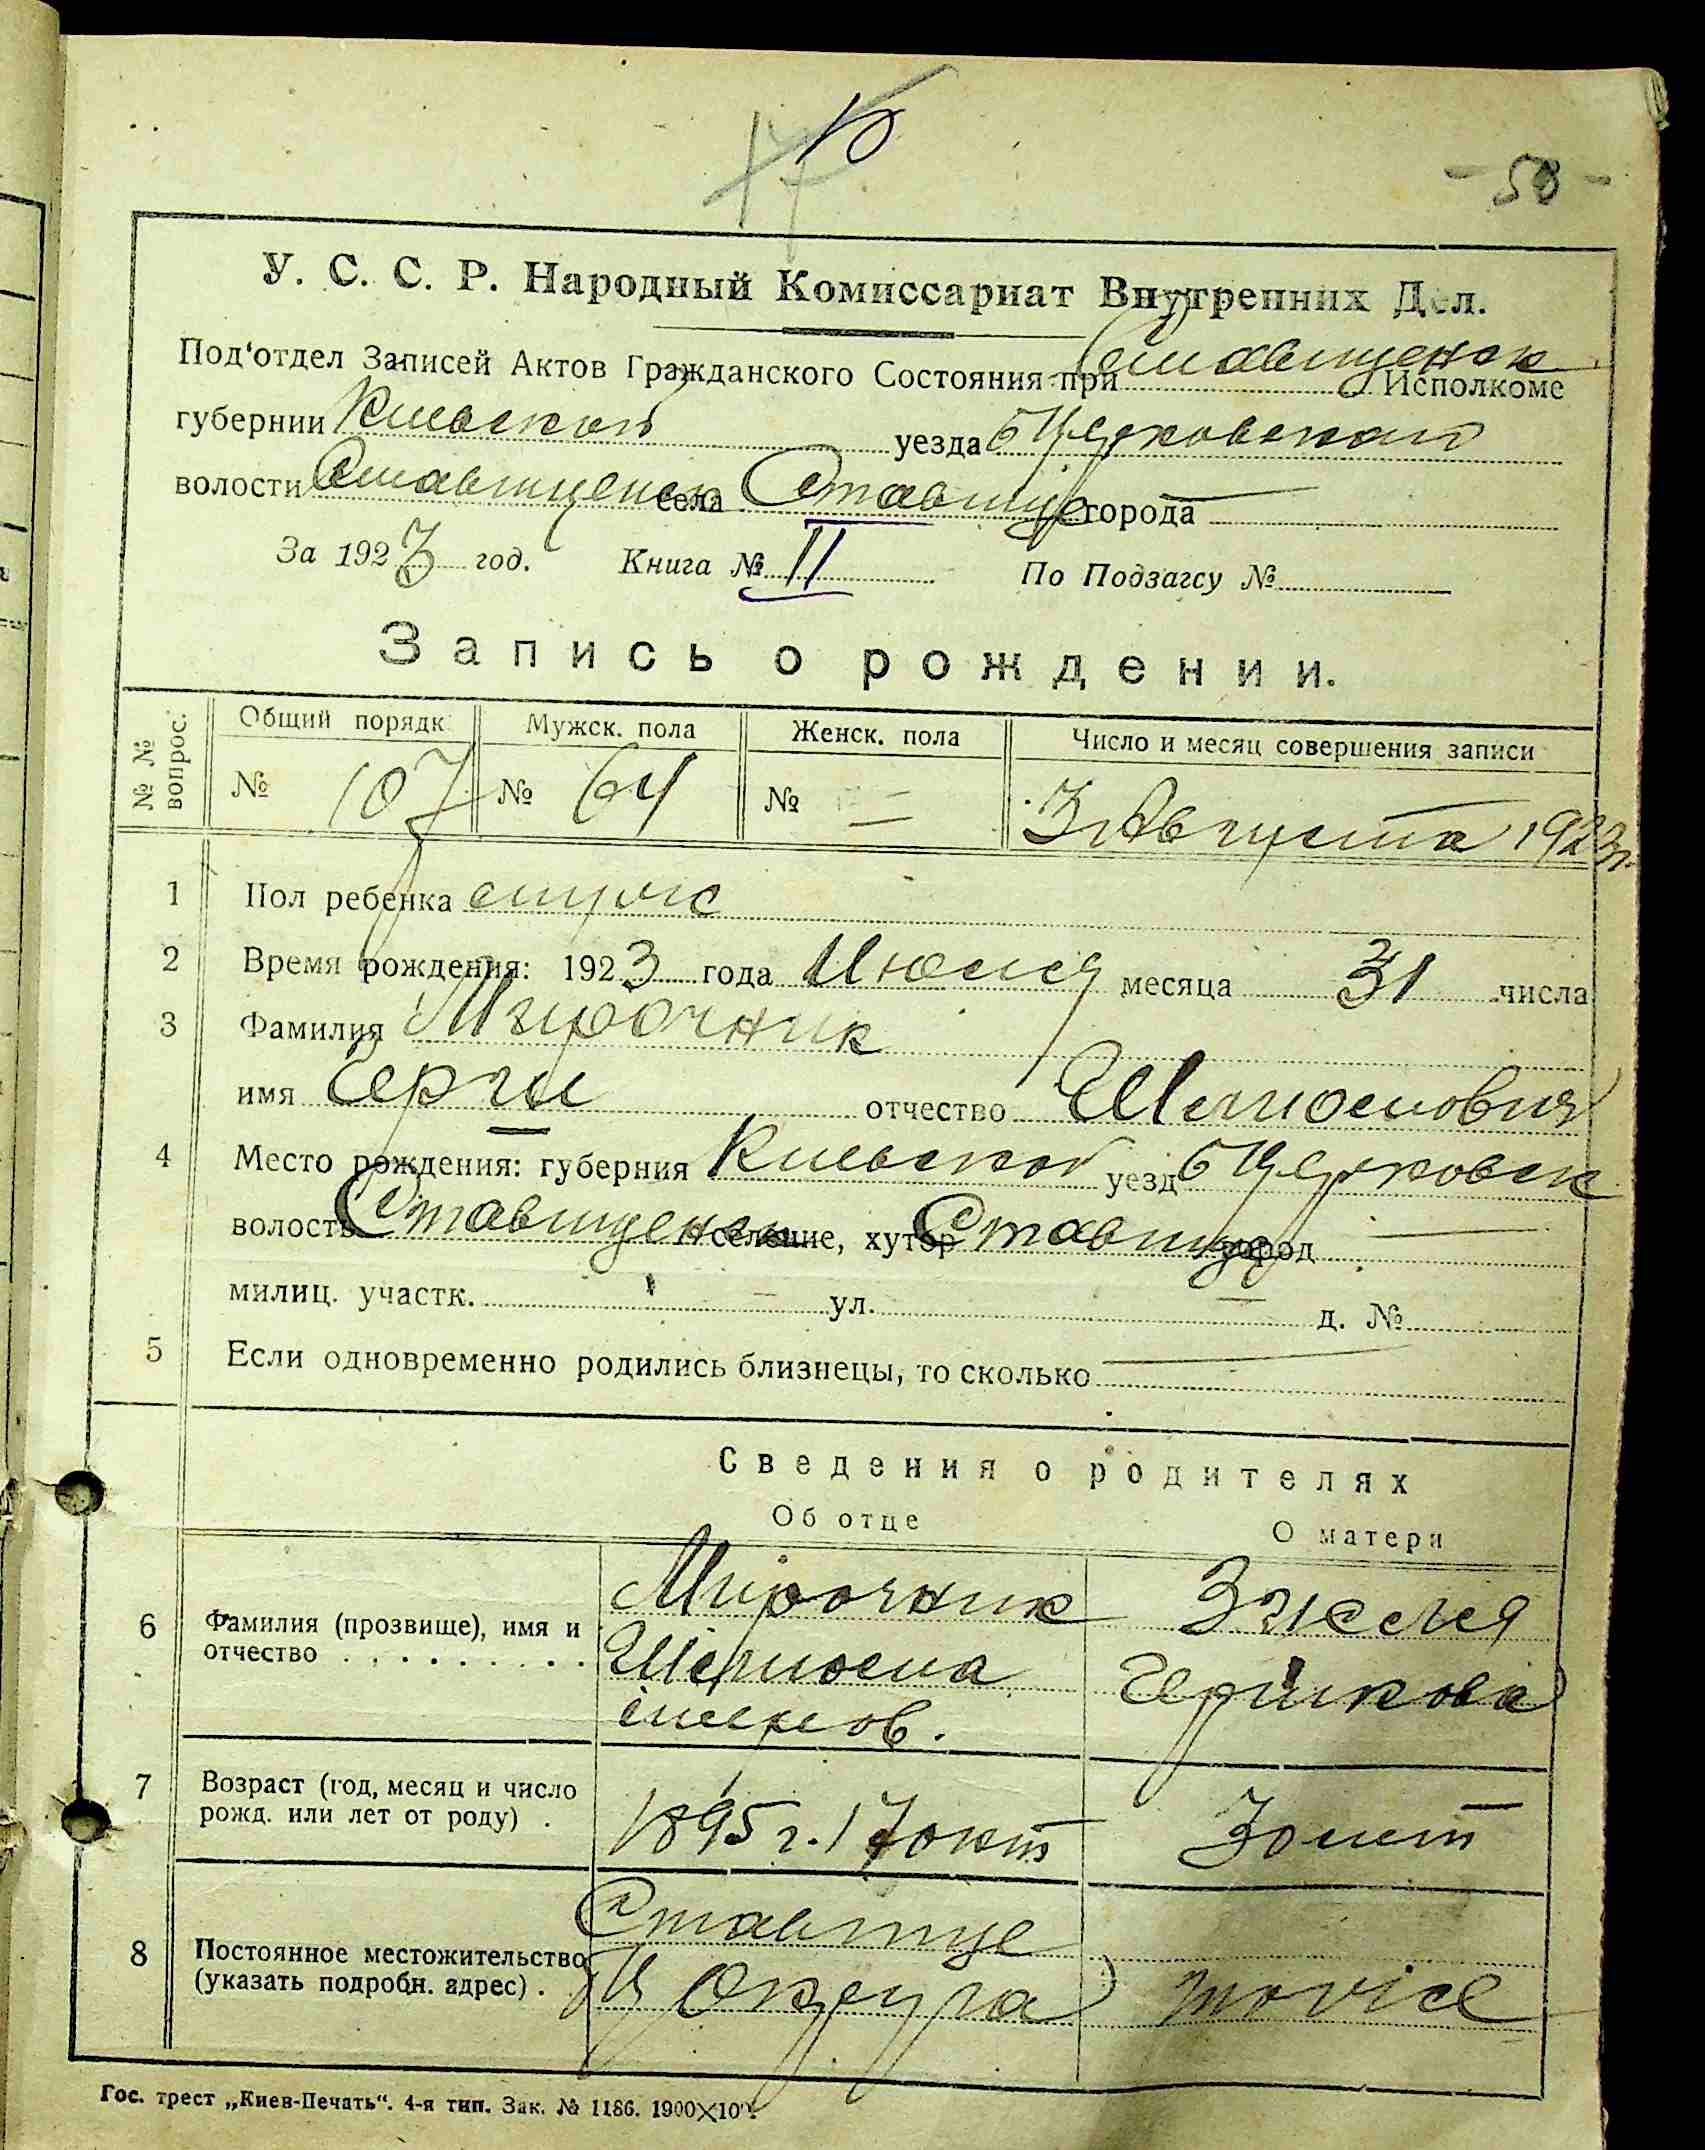 - 50 -
У. С. С. Р. Народный Комиссариат Внутренних Дел.
Под'отдел Записей Актов Гражданского Состояния при Ставищенск Исполкоме
губернии Киевской уезда БЦерковского
волости Ставищенск села Ставище города —
За 1923 год. Книга № II По Подзагсу №
Запись о рождении.
№ № вопрос. Общий порядк. Мужск. пола Женск. пола Число и месяц совершения записи
№ 107 № 64 № — 3 Августа 1923 г.
1 Пол ребенка мужс
2 Время рождения: 1923 года Июля месяца 31 числа
3 Фамилия Мирочник
имя отчество
4 Место рождения: губерния Киевской уезд БЦерковск
волость Ставищенск селение, хутор Ставище город —
милиц. участк. — ул. — д. №
5 Если одновременно родились близнецы, то сколько —
Сведения о родителях
Об отце О матери
6 Фамилия (прозвище), имя и отчество . . . . . . . . .
Мирочник
Гершкова
7 Возраст (год, месяц и число рожд. или лет от роду) .
1895 г. 17 окт 30 лет
8 Постоянное местожительство (указать подробн. адрес) .
Ставище
БЦ Округа тоже
Гос. трест „Киев-Печать“. 4-я тип. Зак. № 1186. 1900×10